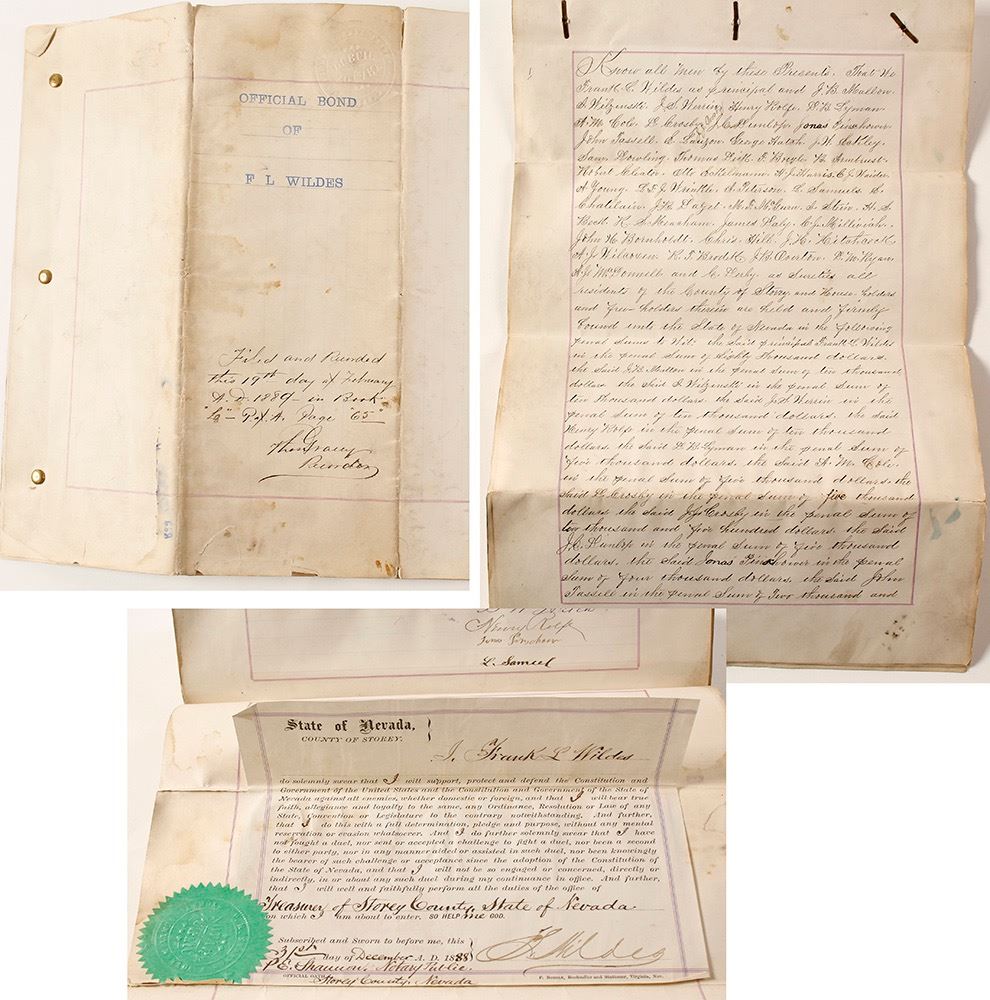 OFFICIAL BOND
OF
F L WILDES
Filed and Recorded
this 19th day of February
A.D. 1889 in Book
Page "65"
Thos Gracey
Recorder
Know all Men by these Presents. That We
Frank L. Wildes as principal and J.B. Mallon.
Henry Rolfe. D.B. Lyman.
A.M. Cole. D. Crosby J.C. Dunlop. Jonas
John Tassell. George Hatch. J.W.
Sam Dowling. Thomas
Robert Otto Eckelmann. Harris. C.J.
A Young. D.E.J. Wrinkle. Peterson. L. Samuels. E.
Chatelain. J.H. M. Stein. H.S.
Beck. James Daly. C.J.
John H. Bornholdt. Chris Hill. J.H. Hitchcock.
J.B. Overton. D.M. Ryan.
McDonnell and C. Derby as sureties all
residents of the County of Storey and House-holders
and free holders therein are held and firmly
bound unto the State of Nevada in the following
penal sums to Wit: the said principal Frank L. Wildes
in the penal sum of Eighty thousand dollars.
the said J.B. Mallon in the penal sum of ten thousand
dollars the said in the penal sum of
ten thousand dollars. the said J.S. in the
penal sum of ten thousand dollars. the said
Henry Rolfe in the penal sum of ten thousand
dollars the said D.B. Lyman in the penal sum of
five thousand dollars. the said A.M. Cole.
in the penal sum of five thousand dollars. the
said D. Crosby in the penal sum of five thousand
dollars the said Crosby in the penal sum of
two thousand and five hundred dollars. the said
J.C. Dunlop in the penal sum of five thousand
dollars. the said Jonas in the penal
sum of four thousand dollars. the said John
Tassell in the penal sum of Two thousand and
Henry Rolfe
L. Samuel
State of Nevada,
COUNTY OF STOREY.
I, Frank L Wildes
do solemnly swear that I will support, protect and defend the Constitution and
Government of the United States and the Constitution and Government of the State of
Nevada against all enemies, whether domestic or foreign, and that I will bear true
faith, allegiance and loyalty to the same, any Ordinance, Resolution or Law of any
State, Convention or Legislature to the contrary notwithstanding. And further,
that I do this with a full determination, pledge and purpose, without any mental
reservation or evasion whatsoever. And I do further solemnly swear that I have
not fought a duel, nor sent or accepted a challenge to fight a duel, nor been a second
to either party, nor in any manner aided or assisted in such duel, nor been knowingly
the bearer of such challenge or acceptance since the adoption of the Constitution of
the State of Nevada, and that I will not be so engaged or concerned, directly or
indirectly, in or about any such duel during my continuance in office. And further,
that I will well and faithfully perform all the duties of the office of
Treasurer of Storey County, State of Nevada
on which I am about to enter. SO HELP me GOD.
Subscribed and Sworn to before me, this
31st day of December A. D. 1888
F L Wildes
P E Shannon, Notary Public
OFFICIAL OATH
Storey County, Nevada
Bookseller and Stationer, Virginia, Nev.